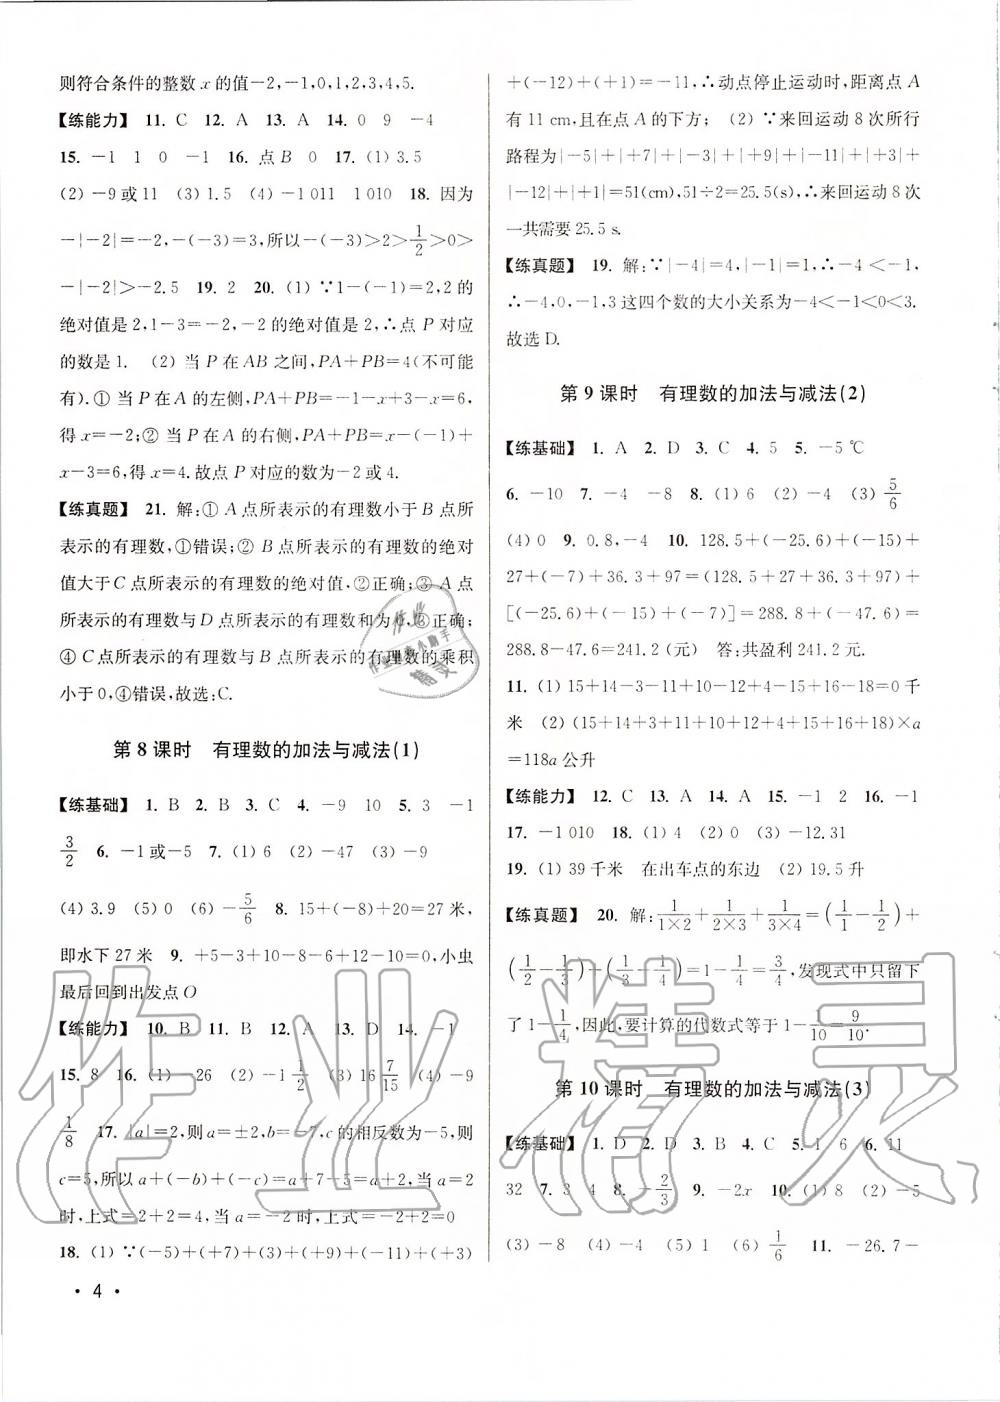 则符合条件的整数 x 的值－2,－1,0,1,2,3,4,5.
【练能力】 11. C 12. A 13. A 14. 0 9 －4
15. －1 1 0 －1 16. 点 B 0 17. (1) 3.5
(2) －9 或 11 (3) 1.5 (4) －1 011 1 010 18. 因为
－|－2|＝－2,－(－3)＝3,所以－(－3)＞2＞1/2＞0＞
－|－2|＞－2.5 19. 2 20. (1) ∵1－(－1)＝2,2 的
绝对值是 2,1－3＝－2,－2 的绝对值是 2,∴点 P 对应
的数是 1. (2) 当 P 在 AB 之间,PA＋PB＝4(不可能
有).① 当 P 在 A 的左侧,PA＋PB＝－1－x＋3－x＝6,
得 x＝－2;② 当 P 在 A 的右侧,PA＋PB＝x－(－1)＋
x－3＝6,得 x＝4.故点 P 对应的数为－2 或 4.
【练真题】 21. 解:① A 点所表示的有理数小于 B 点所
表示的有理数,①错误;② B 点所表示的有理数的绝对
值大于 C 点所表示的有理数的绝对值,②正确;③ A 点
所表示的有理数与 D 点所表示的有理数和为 0,③正确;
④ C 点所表示的有理数与 B 点所表示的有理数的乘积
小于 0,④错误,故选:C.
第 8 课时 有理数的加法与减法(1)
【练基础】 1. B 2. B 3. C 4. －9 10 5. 3 －1
3/2 6. －1 或－5 7. (1) 6 (2) －47 (3) －9
(4) 3.9 (5) 0 (6) －5/6 8. 15＋(－8)＋20＝27 米,
即水下 27 米 9. ＋5－3＋10－8－6＋12－10＝0,小虫
最后回到出发点 O
【练能力】 10. B 11. B 12. A 13. D 14. －1
15. 8 16. (1) －26 (2) －1 1/2 (3) 16 7/15 (4) －9
1/8 17. |a|＝2,则 a＝±2,b＝－7,c 的相反数为－5,则
c＝5,所以 a＋(－b)＋(－c)＝a＋7－5＝a＋2,当 a＝2
时,上式＝2＋2＝4,当 a＝－2 时,上式＝－2＋2＝0
18. (1) ∵(－5)＋(＋7)＋(－3)＋(＋9)＋(－11)＋(＋3)
· 4 ·
＋(－12)＋(＋1)＝－11,∴动点停止运动时,距离点 A
有 11 cm,且在点 A 的下方; (2) ∵来回运动 8 次所行
路程为|－5|＋|＋7|＋|－3|＋|＋9|＋|－11|＋|＋3|＋
|－12|＋|＋1|＝51(cm),51÷2＝25.5(s),∴来回运动 8 次
一共需要 25.5 s.
【练真题】 19. 解:∵|－4|＝4,|－1|＝1,∴－4＜－1,
∴－4,0,－1,3 这四个数的大小关系为－4＜－1＜0＜3.
故选 D.
第 9 课时 有理数的加法与减法(2)
【练基础】 1. A 2. D 3. C 4. 5 5. －5 ℃
6. －10 7. －4 －8 8. (1) 6 (2) －4 (3) 5/6
(4) 0 9. 0.8,－4 10. 128.5＋(－25.6)＋(－15)＋
27＋(－7)＋36.3＋97＝(128.5＋27＋36.3＋97)＋
[(－25.6)＋(－15)＋(－7)]＝288.8＋(－47.6)＝
288.8－47.6＝241.2 (元) 答:共盈利 241.2 元.
11. (1) 15＋14－3－11＋10－12＋4－15＋16－18＝0 千
米 (2) (15＋14＋3＋11＋10＋12＋4＋15＋16＋18)×a
＝118a 公升
【练能力】 12. C 13. A 14. A 15. －1 2 16. －1
17. －1 010 18. (1) 4 (2) 0 (3) －12.31
19. (1) 39 千米 在出车点的东边 (2) 19.5 升
【练真题】 20. 解:1/(1×2)＋1/(2×3)＋1/(3×4)＝(1/1－1/2)＋
(1/2－1/3)＋(1/3－1/4)＝1－1/4＝3/4,发现式中只留下
了 1－1/4,因此,要计算的代数式等于 1－1/10＝9/10.
第 10 课时 有理数的加法与减法(3)
【练基础】 1. D 2. D 3. B 4. C 5. 1 6 6. 11
32 7. 3 4 8. －2/3 9. －2x 10. (1) 8 (2) －5
(3) －8 (4) －5 (5) 1 (6) 1/6 11. －26.7－
作业精灵